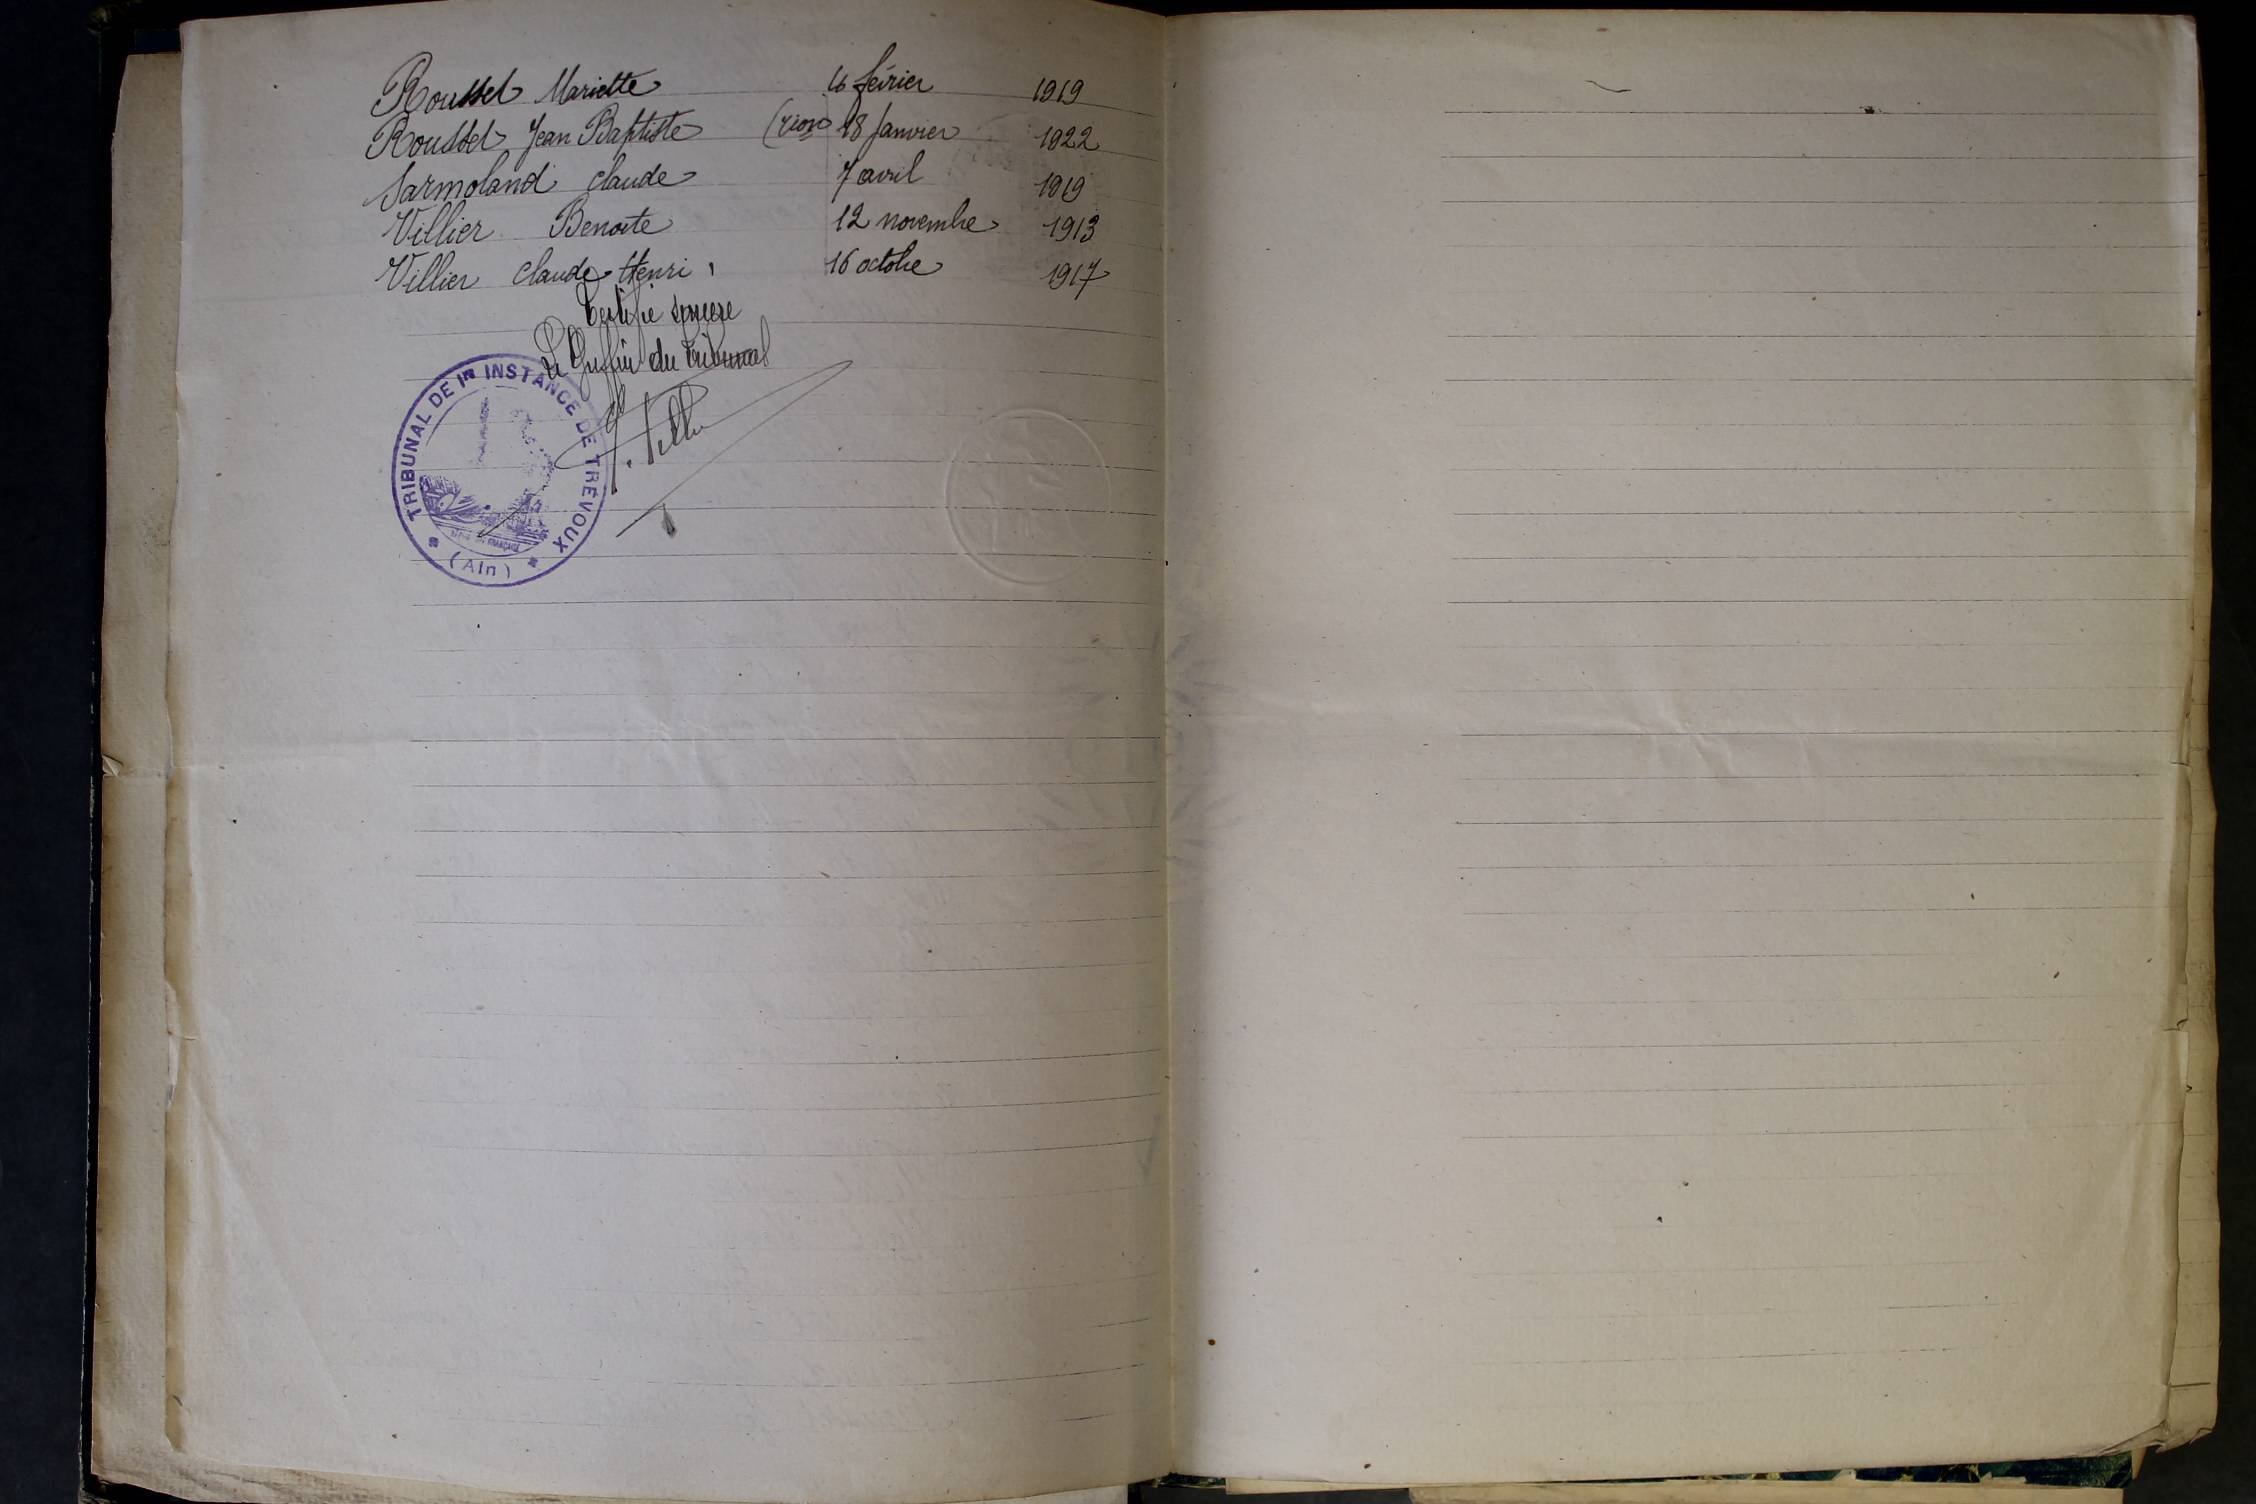 Roussel Mariette 16 février 1919
Roussel Jean Baptiste (rion 18 Janvier 1922
Sarmoland claude 7 avril 1919
Villier Benoite 12 novembre 1913
Villier claude Henri 16 octobre 1917
Certifié sincère
Le Greffier du Tribunal
TRIBUNAL DE Ire INSTANCE DE TREVOUX
(Ain)